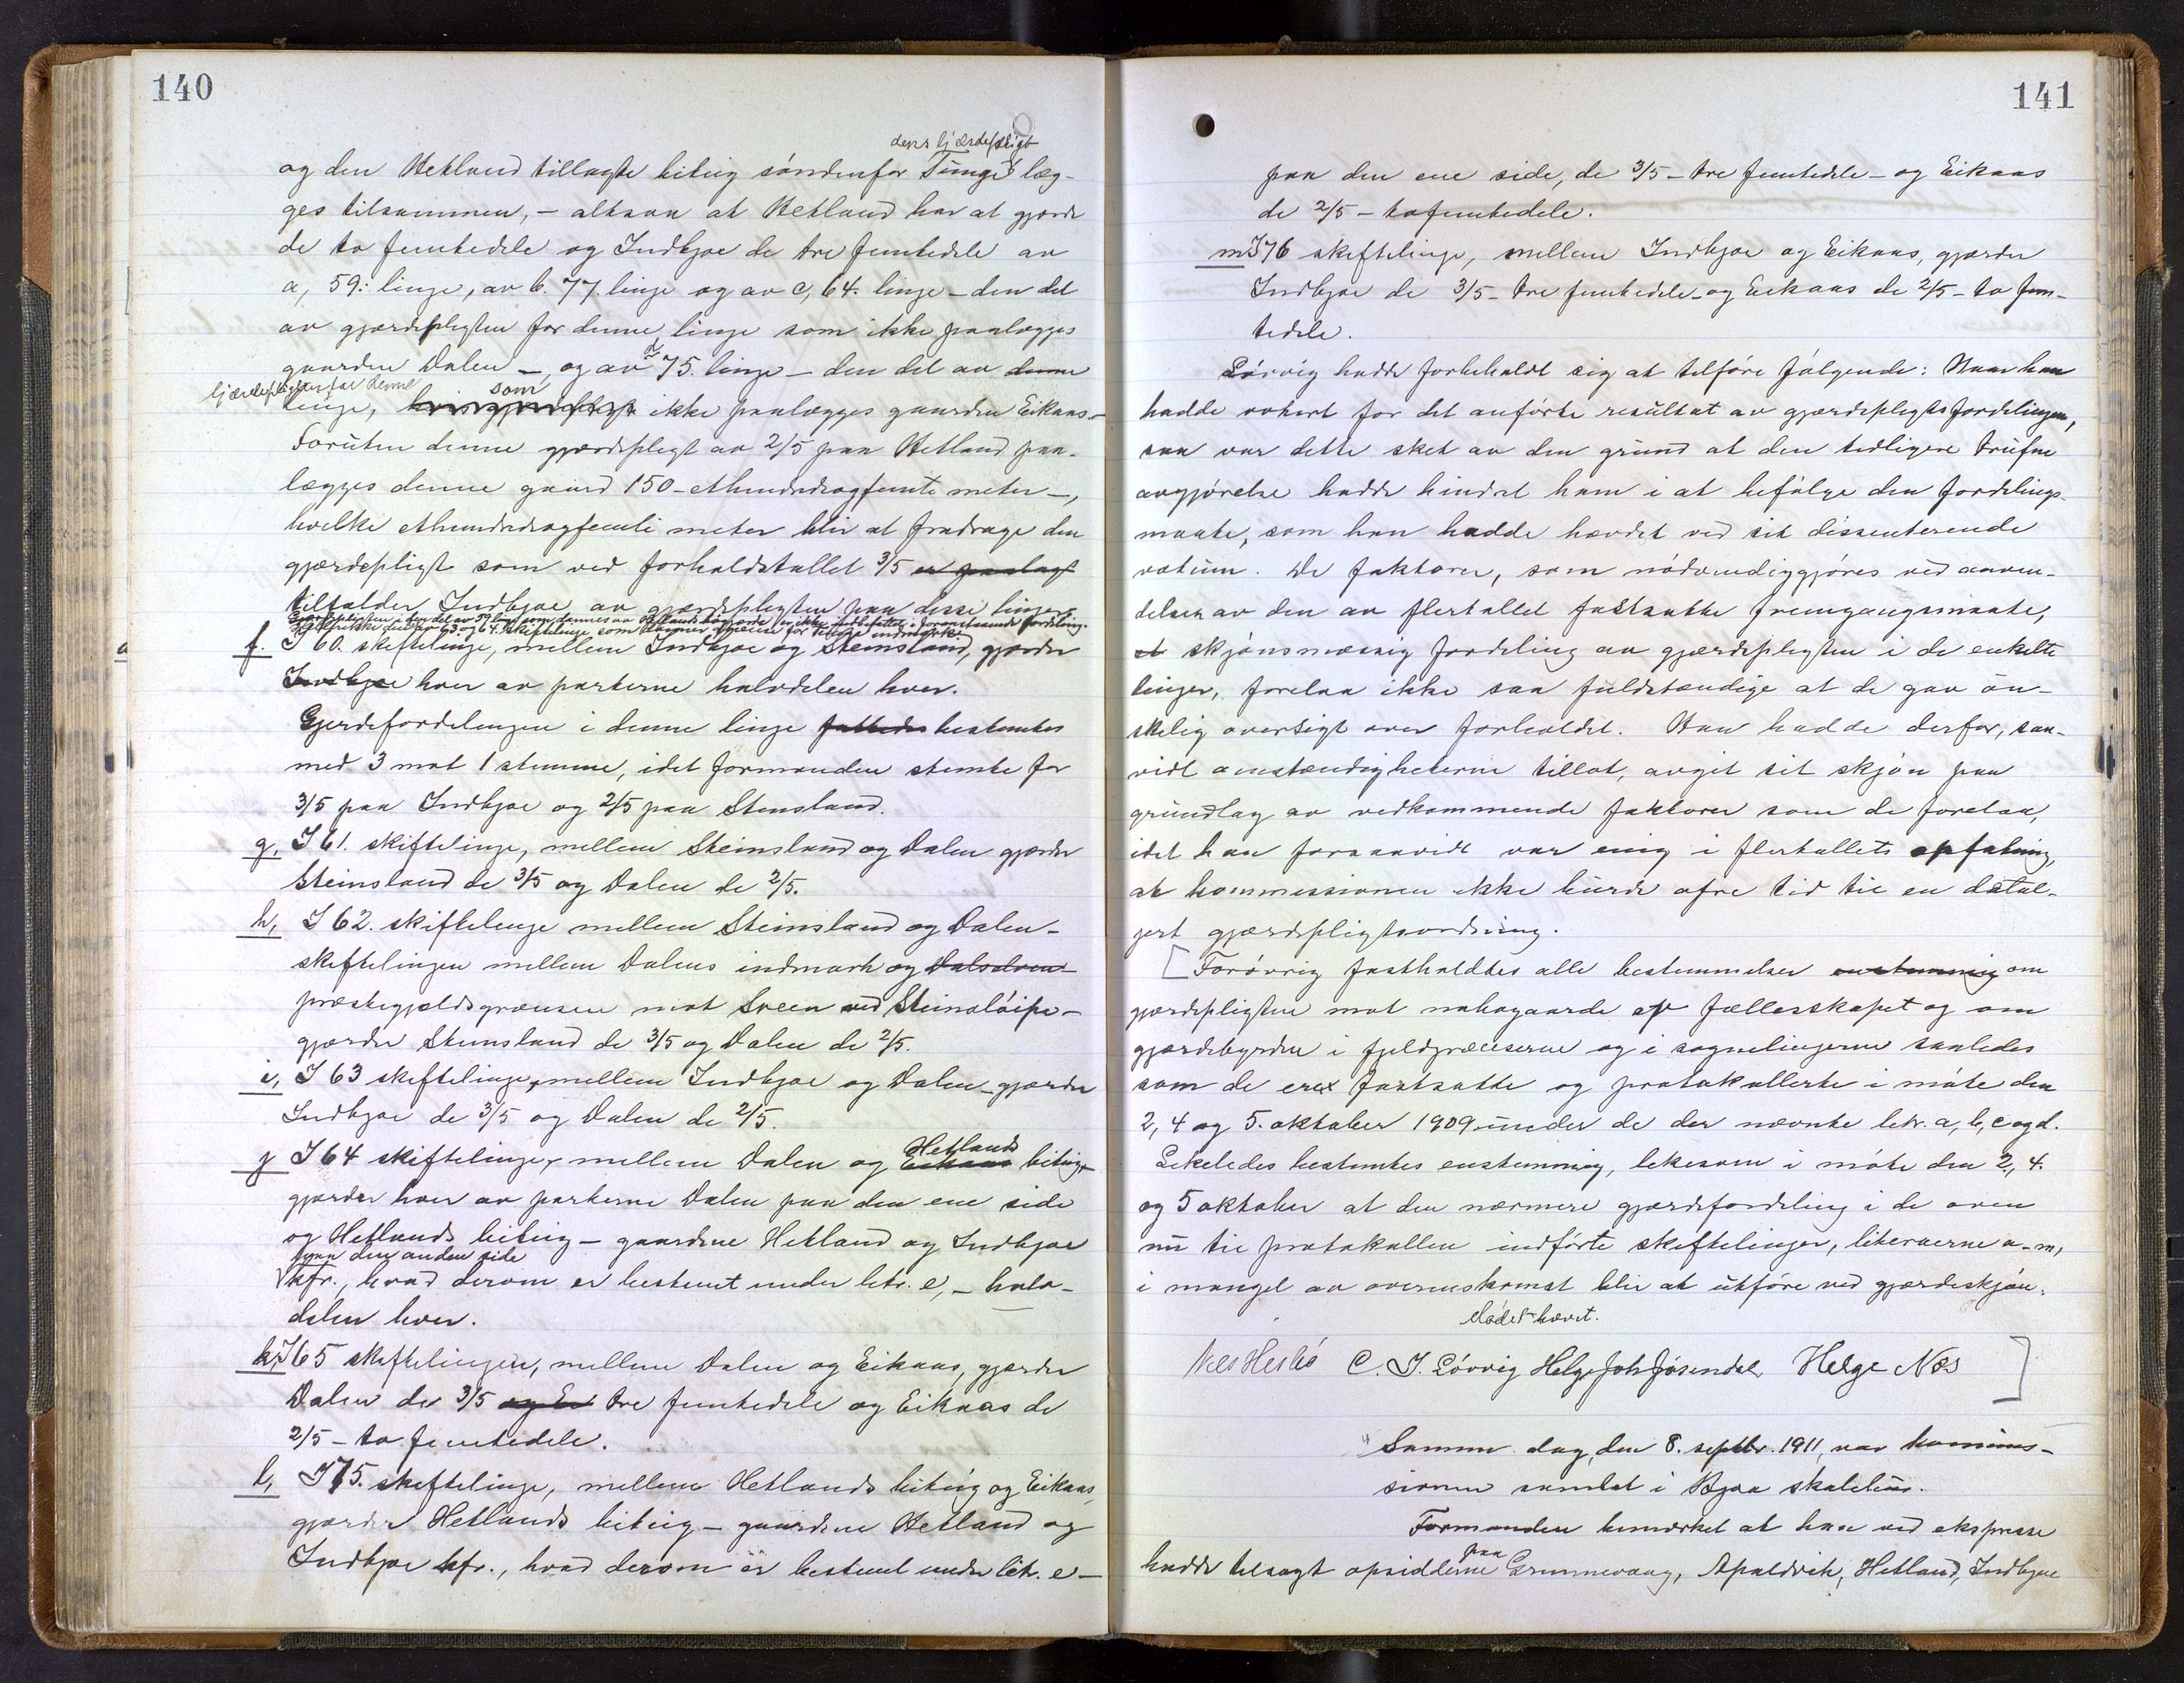 140
dens gjærdepligt
og den Hetland tillagte biteig söndenfor Tunge læg-
ges tilsammen, – altsaa at Hetland har at gjærde
de to femtedele og Indbjoe de tre femtedele av
a, 59: linje, av b. 77. linje og av c, 64. linje – den del
av gjærdepligten for denne linje som ikke paalægges
gaarden Dalen –, og av d 75. linje – den del av denne
gjærdepligten for denne som
linje, ikke paalægges gaarden Eikaas. –
Foruten denne gjærdepligt av 2/5 paa Hetland paa-
lægges denne gaard 150 – ethundredeogfemti meter –,
hvilke ethundredeogfemti meter blir at fradrage den
gjærdepligt som ved forholdstallet 3/5 er paalagt
tilfalder Indbjoe av gjærdepligten paa disse linjer.
Gjærdepligten i den del av 59 linje som dannes av Hetlands er ikke indbefattet i foranstaaende fordeling.
Heller ikke den av 63. og 64. skiftelinje som danner grænse for Tunge indmark.
f. I 60. skiftelinje, mellem Indbjoe og Steinsland, gjærder
Indbjoe hver av parterne halvdelen hver.
Gjerdefordelingen i denne linje fattedes bestemtes
med 3 mot 1 stemme, idet formanden stemte for
3/5 paa Indbjoe og 2/5 paa Stensland.
g, I 61. skiftelinje, mellem Steinsland og Dalen gjærder
Steinsland de 3/5 og Dalen de 2/5.
h, I 62. skiftelinje mellem Steinsland og Dalen –
skiftelinjen mellem Dalens indmark og Dalselven
præstegjældsgrænsen mot Sveen ved Steinslöipe –
gjærder Steinsland de 3/5 og Dalen de 2/5.
i, I 63 skiftelinje, mellem Indbjoe og Dalen gjærder
Indbjoe de 3/5 og Dalen de 2/5.
j I 64 skiftelinje, mellem Dalen og Eikaas Hetlands biteig,
gjærder hver av parterne Dalen paa den ene side
og Hetlands biteig – gaardene Hetland og Indbjoe
paa den anden side
kfr., hvad derom er bestemt under litr. e, – halv-
delen hver.
k, I 65 skiftelinjen, mellem Dalen og Eikaas, gjærder
Dalen de 3/5 og Ei tre femtedele og Eikaas de
2/5 – to femtedele.
l, I 75. skiftelinje, mellem Hetlands biteig og Eikaas,
gjærder Hetlands biteig – gaardene Hetland og
Indbjoe kfr., hvad derom er bestemt under litr. e –
141
paa den ene side, de 3/5 – tre femtedele – og Eikaas
de 2/5 – to femtedele.
m I 76 skiftelinje, mellem Indbjoe og Eikaas, gjærder
Indbjoe de 3/5 – tre femtedele – og Eikaas de 2/5 – to fem-
tedele.
Lörvig hadde forbeholdt sig at tilföre fölgende: Naar han
hadde votert for det anförte resultat av gjærdepligtsfordelingen,
saa var dette sket av den grund at den tidligere trufne
avgjörelse hadde hindret ham i at befölge den fordelings-
maate, som han hadde hævdet ved sit dissenterende
votum. De faktorer, som nödvendiggjöres ved anven-
delsen av den av flertallet fastsatte fremgangsmaate,
et skjönsmæssig fordeling av gjærdepligten i de enkelte
linjer, forelaa ikke saa fuldstændige at de gav ön-
skelig oversigt over forholdet. Han hadde derfor, saa-
vidt omstændigheterne tillot, avgit sit skjön paa
grundlag av vedkommende faktorer som de forelaa,
idet han forsaavidt var enig i flertallets opfatning,
at kommissionen ikke burde ofre tid til en detal-
jert gjærdepligtsordning.
[Forövrig fastholdtes alle bestemmelser enstemmig om
gjærdepligten mot nabogaarde av fællesskapet og om
gjærdebyrden i fjeldgrænserne og i sognelinjerne saaledes
som de er fastsatte og protokollerte i möte den
2, 4 og 5. oktober 1909 under de der nævnte litr. a, b, c og d.
Likeledes bestemtes enstemmig, likesom i möte den 2., 4.
og 5 oktober at den nærmere gjærdefordeling i de oven
nu til protokollen indförte skiftelinjer, literaerne a – m,
i mangel av overenskomst blir at utföre ved gjærdeskjön.
Mödet hævet.
Nels Hesbö C. J. Lörvig Helge Joh Jösendal Helge Næs ]
Samme dag, den 8. septbr. 1911, var kommis-
sionen samlet i Bjoa skolehus.
Formanden bemerket at han ved ekspresse
hadde tilsagt opsidderne paa Grunnevaag, Apaldvik, Hetland, Indbjoe